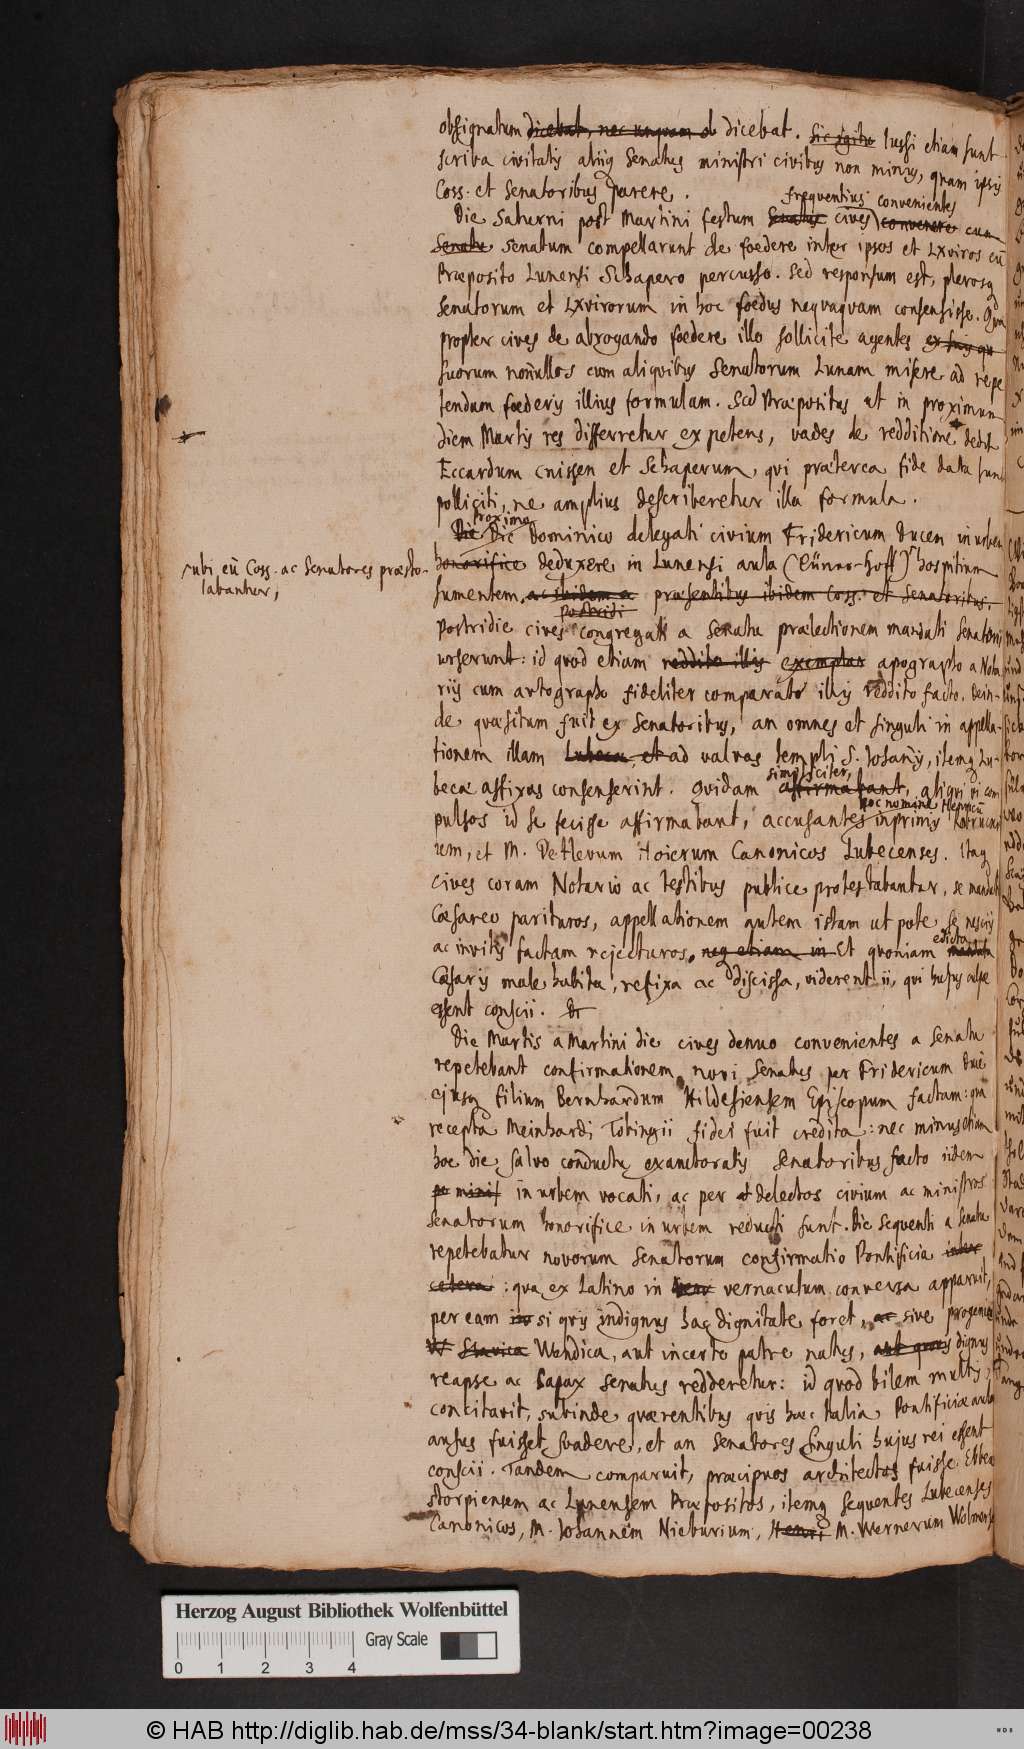 obsignatum dicebat, nec unquam d dicebat. Sic igitu Iussi etiam sunt
scriba civitatis aliiq Senatus ministri civibus non minus, quam ipsis
Coss. et Senatoribus parere.
frequentius convenientes
Die Saturni post Martini festum Senatus cives convenere cum
Senatu Senatum compellarunt de foedere inter ipsos et LXviros cū
Præposito Lunensi Schapero percusso. Sed responsum est, plerosq
Senatorum et LXvirorum in hoc foedus nequaquam consensisse. Quā
propter cives de abrogando foedere illo sollicite agentes ex suis qu
suorum nonnullos cum aliquibus Senatorum Lunam misere ad repe
tendum foederis illius formulam. Sed Præpositus ut in proximum
diem Martis res differretur expetens, vades de redditione dedit
Eccardum Cnissen et Schaperum, qui præterea fide data sunt
polliciti, ne amplius describeretur illa formula.
proximo
Die Die Dominico delegati civium Fridericum Ducem in urbem
ubi eū Coss. ac Senatores præsto-
labantur,
honorifice deduxere in Lunensi aula (Lünner-hoff) hospitium
sumentem, ac ibidem a præsentibus ibidem Coss. et Senatoribus.
postridi
Postridie cives congregati a Senatu prælectionem mandati Senatorii
urserunt: id quod etiam reddito illis exemplar apographo a Nota
riis cum autographo fideliter comparato illis reddito facto. Dein-
de quæsitum fuit ex Senatoribus, an omnes et singuli in appella-
tionem illam Lubecæ, et ad valvas templi S. Johannis, itemq Lu-
becæ affixas consenserint. Quidam affirmabant, aliqui vi com
simpliciter,
pulsos id se fecisse affirmabant, accusantes inprimis
hoc nomine Henricū
ium, et M. Detlevum Hoierum Canonicos Lubecenses. Itaq
cives coram Notario ac testibus publice protestabantur, se mandati
Cæsareo parituros, appellationem autem istam ut pote se nesciis
ac invitis factam rejecturos, neq etiam in Et quoniam mandata
edicta
Cæsaris male habita, refixa ac discissa, viderent ii, qui hujus culpæ
essent conscii. Di
Die Martis a Martini die cives denuo convenientes a Senatu
repetebant confirmationem novi Senatus per Fridericum Ducē
ejusq filium Bernhardum Hildesiensem Episcopum factam: qua
recepta Meinhardi Tobingii fidei fuit credita: nec minus etiam
hoc die, salvo conductu exauctoratis Senatoribus facto iidem
in urbem vocati, ac per delectos civium ac ministros
Senatorum honorifice in urbem reducti sunt. Die sequenti a Senatu
repetebatur novorum Senatorum confirmatio Pontificia inter
cetera: qua ex Latino in vernaculum conversa apparuit,
per eam si quis indignus hac dignitate foret, ac sive progenie
W Slavica Wendica, aut incerto patre natus, aut quovis dignus
reapse ac capax Senatus redderetur: id quod bilem multis
concitavit, subinde quærentibus quis hæc Italia Pontificiæ aula
ausus fuisset suadere, et an Senatores singuli hujus rei essent
conscii. Tandem comparuit, præcipuos architectos fuisse Ebbe
storpiensem ac Lunensem Præpositos, itemq sequentes Lubecenses
Canonicos, M. Johannem Nieburium, Henri M. Wernerum
Herzog August Bibliothek Wolfenbüttel
Gray Scale
0 1 2 3 4
© HAB http://diglib.hab.de/mss/34-blank/start.htm?image=00238